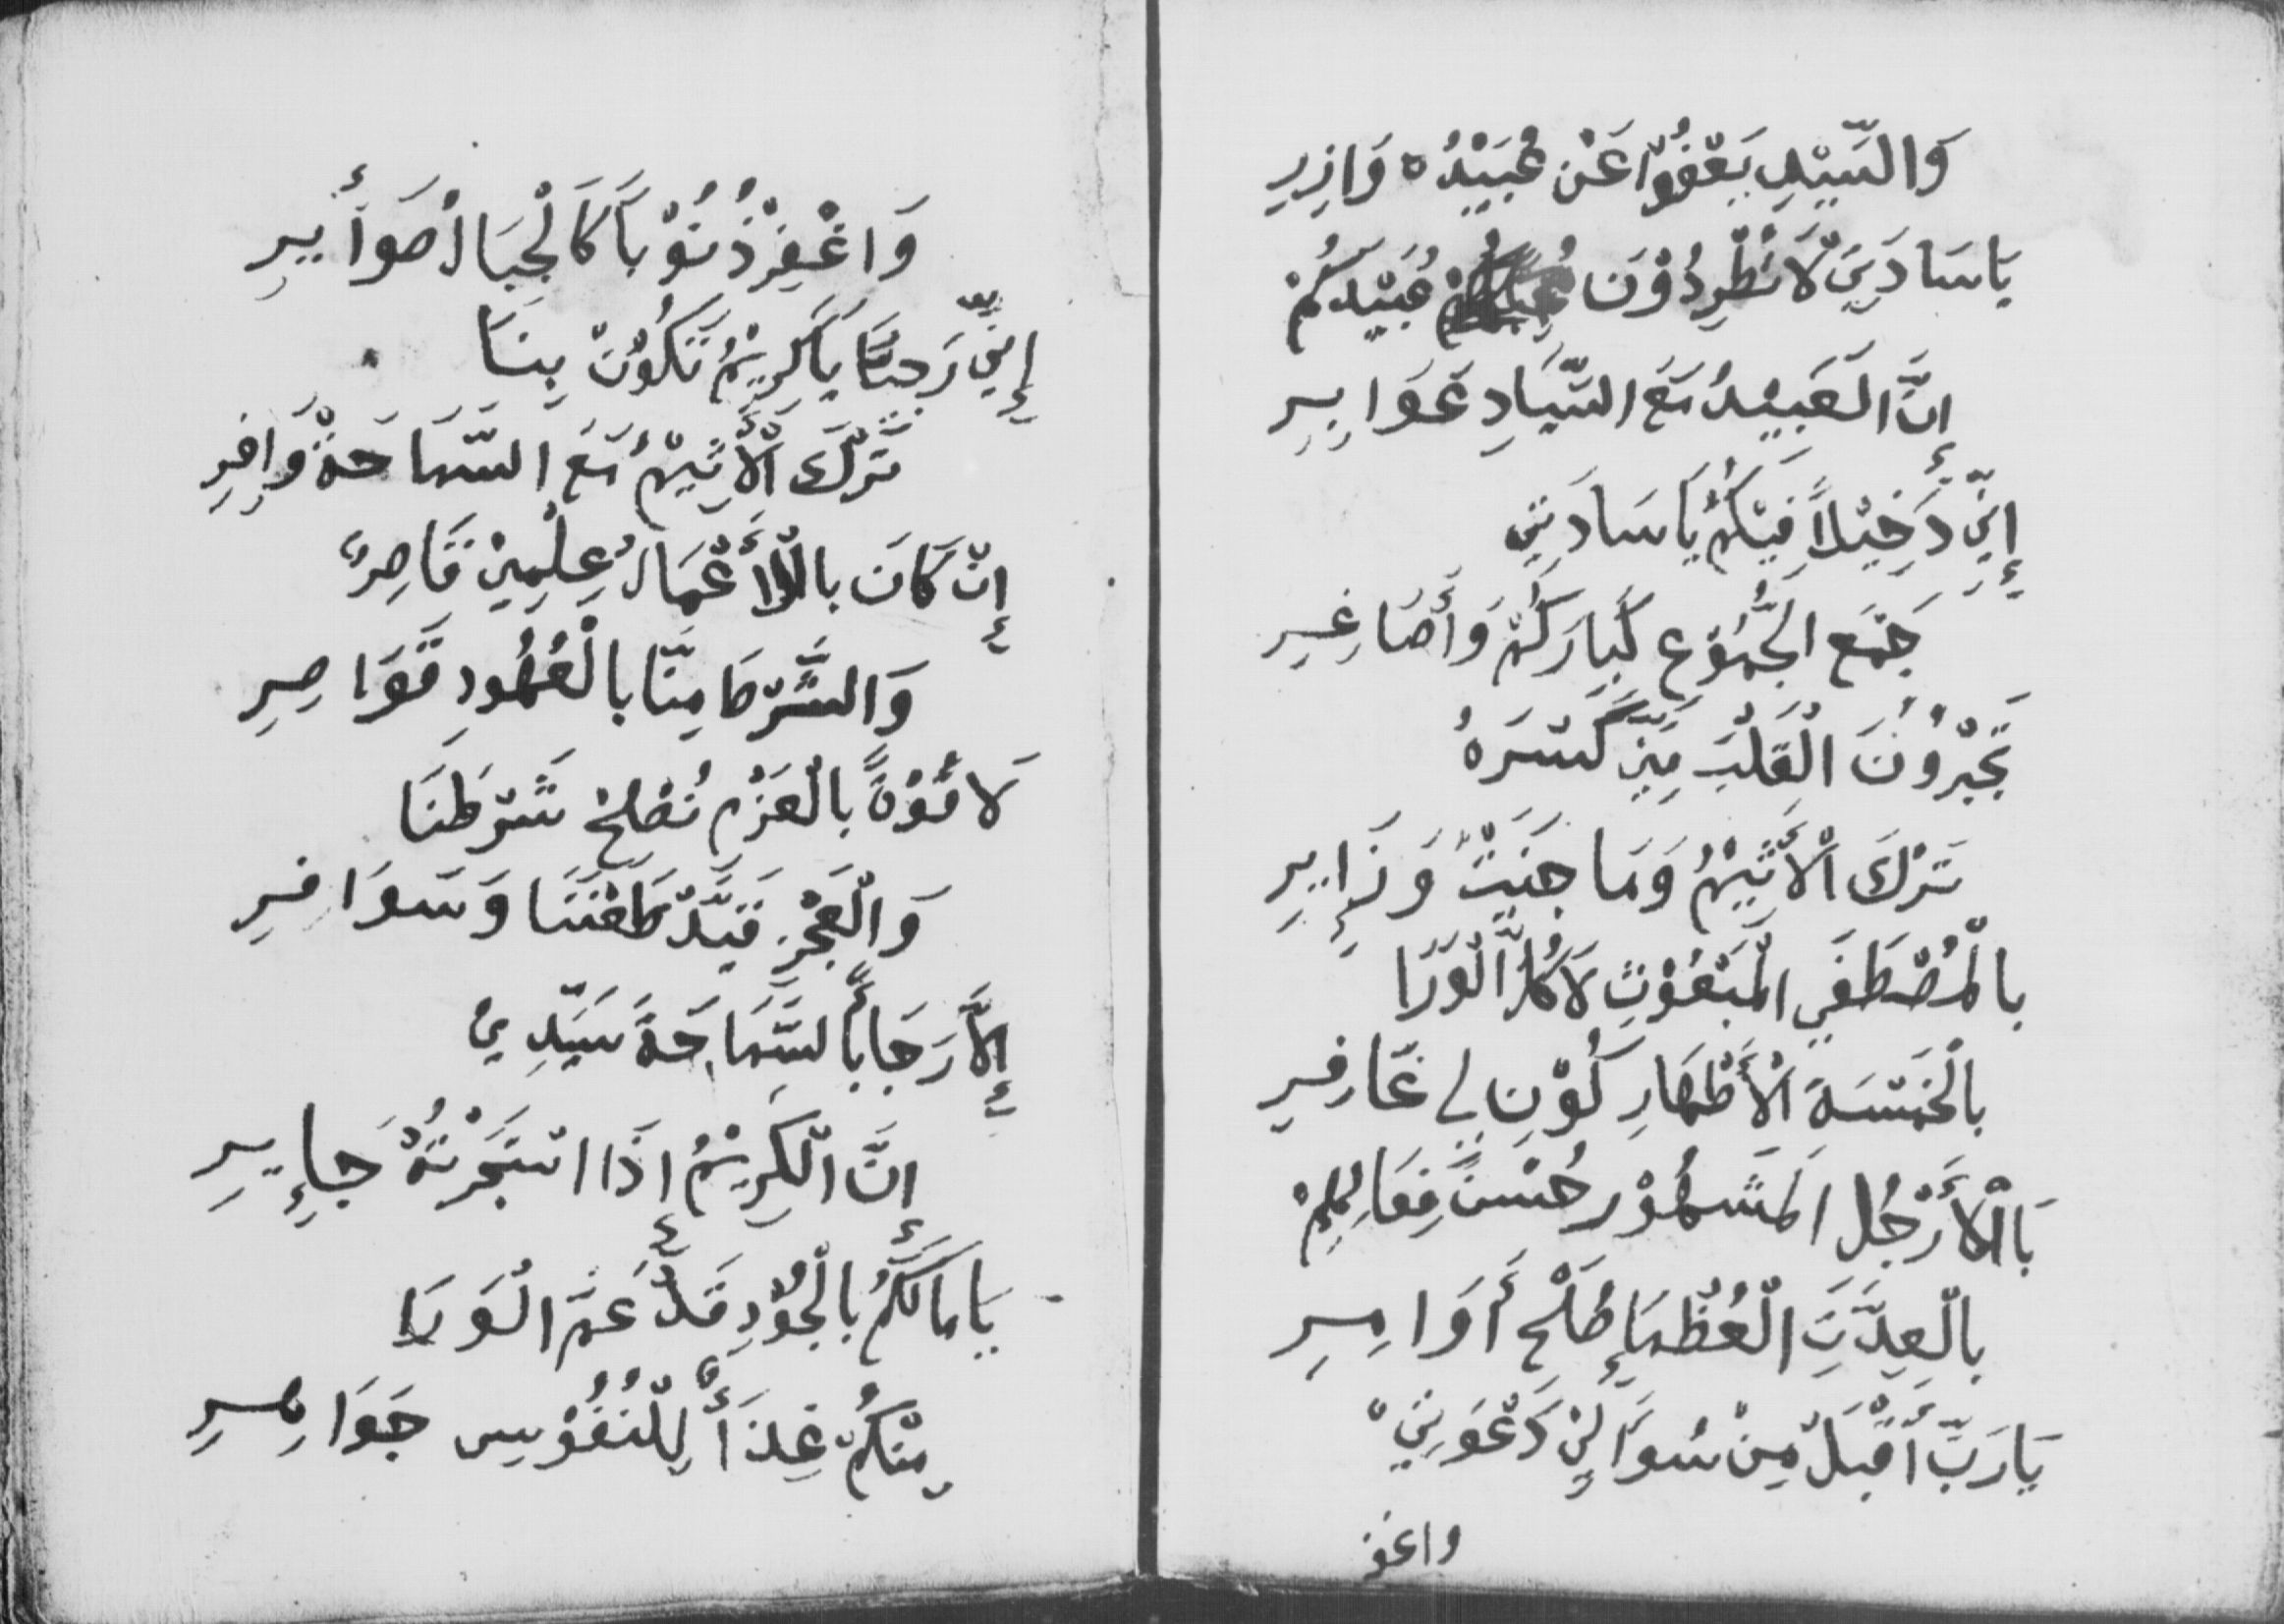 وَالسَّيِّدِ يَعْفُوْا عَنْ عُبَيْدُه وَازِرِ
يَا سَادَتِيْ لَا تَطْرِدُوْنَ عُبَيْدَكُمْ
إِنَّ الْعَبِيْدُ مَعَ السَّيَادِ عَوَابِرِ
إِنِّيْ دَخِيْلاً فِيْكُمْ يَا سَادَتِيْ
جَمْعِ الْجُمُوْعِ كِبَارَكُمْ وَأَصَاغِرِ
تَجْبُرُوْنَ الْقَلْبَ مِنْ كَسْرَهُ
تَرْكَ الْأَثِيْمُ وَمَا جَنَيْتُ وَزَايِرِ
بِالْمُصْطَفَى الْمَبْعُوْثِ لَاكُلَّ الْوَرَا
بِالْخَمْسَةَ الْأَطْهَارِ كُوْنِ لِي غَافِرِ
بِالْأَرْجُلِ الْمَشْهُوْرِ حُسْنَ فِعَالِهِمْ
بِالْعِدَّتِ الْعُظْمَا صُلْحِ أَوَامِرِ
يَا رَبِّ أَقْبَلْ مِنْ سُوَالِيْ دَعْوَتِيْ
واغفر
وَاغْفِرْ ذُنُوْباً كَالْجِبَالْ صَوَأيِرِ
إِنِّيْ رَجِيْتُ يَا كَرِيْمُ تَكُوْنْ بِنَا
تَرْكَ الْأَثِيْمُ مَعَ السَّمَاحَةْ وَافِرِ
إِنْ كَانَ بِالْأَعْمَالُ عِلْمِيْ قَاصِرٌ
وَالشَّرْطَا مِنَّا بِالْعُهُودِ قَوَاصِرِ
لَا قُوْةً بِالْعَزْمِ نُصْلِحْ شَرْطَنَا
وَالْعَجْزِ قَيَّدْ طَعْنَنَا وَسَوَافِرِ
إِلاَّ رَجَا بَالسَّمَاحَةَ سَيِّدِيْ
إِنَّ الْكَرِيْمُ إِذَا اسْتَجَرْتُهُ جَإيِرِ
يَا مَالَكُمُ بِالْجُوْدِ قَدْ عَمَّ الْوَرَا
مِنْكُمْ غِذَأً لِلنُفُوْسِ جَوَاهِرِ